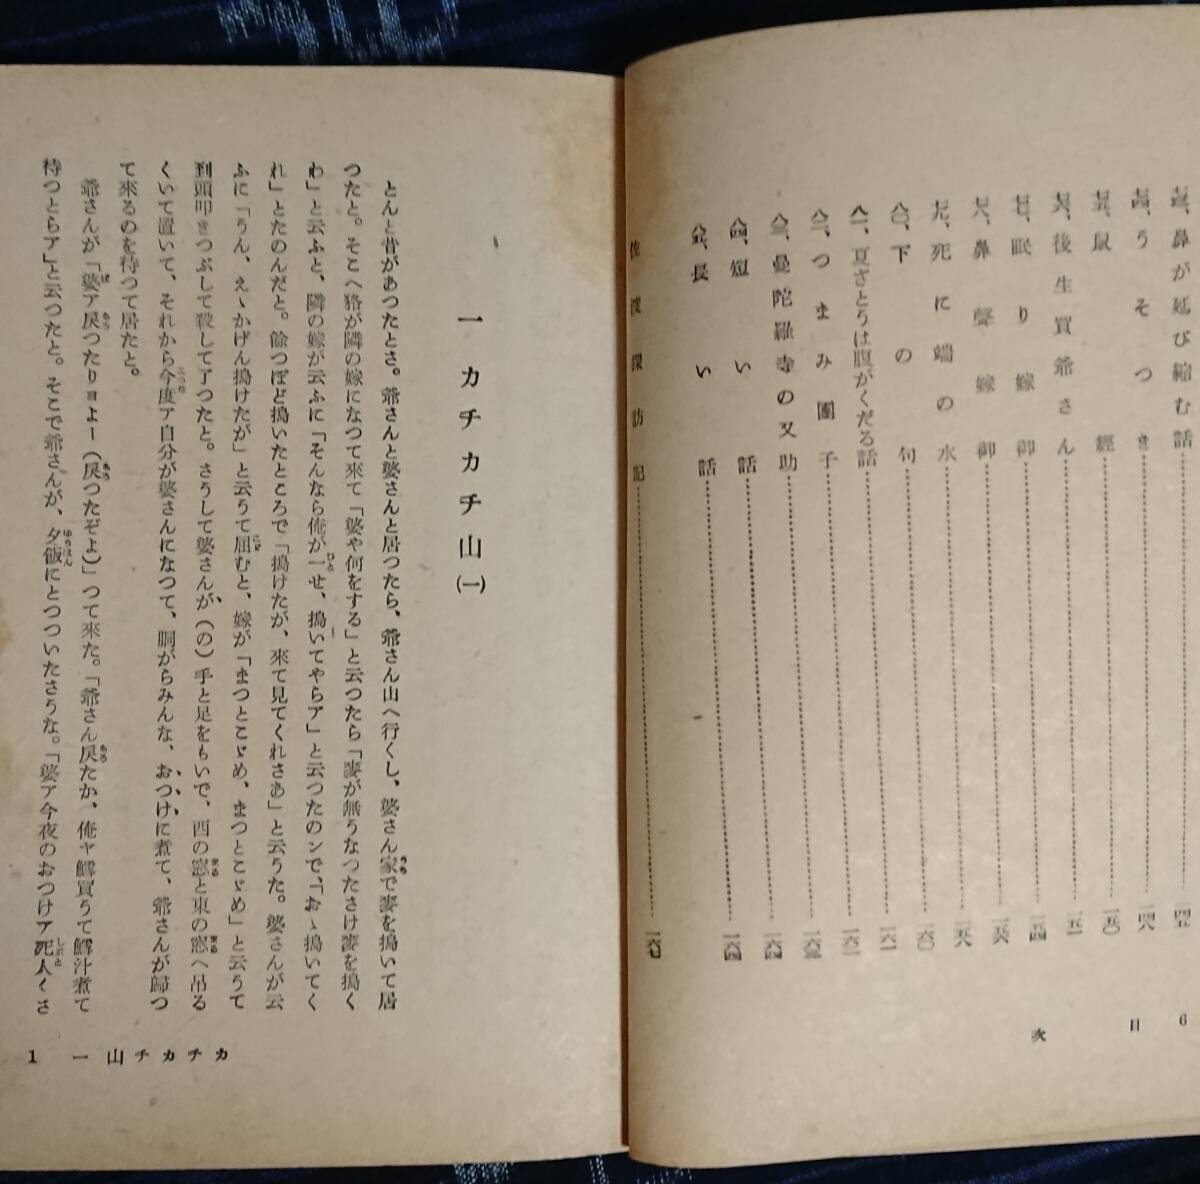 七三、鼻が延び縮む話……一四五
七四、うそつき……一四八
七五、鼠經……一五〇
七六、後生買爺さん……一五一
七七、眠り嫁御……一五四
七八、鼻聲嫁御……一五六
七九、死に端の水……一五八
八〇、下の句……一六〇
八一、夏ざとうは腹がくだる話……一六一
八二、つまみ團子……一六二
八三、曼陀羅寺の又助……一六三
八四、短い話……一六四
八五、長い話……一六四
佐渡探訪記……一六七
目次 6
一 カチカチ山(一)
とんと昔があつたとさ。爺さんと婆さんと居つたら、爺さん山へ行くし、婆さん家で麥を搗いて居
つたと。そこへ狢が隣の嫁になつて來て「婆や何をする」と云つたら「麥が無うなつたさけ麥を搗く
わ」と云ふと、隣の嫁が云ふに「そんなら俺が一せ、搗いてやらア」と云つたのンで、「おゝ搗いてく
れ」とたのんだと。餘つぽど搗いたところで「搗けたが、來て見てくれさあ」と云うた。婆さんが云
ふに「うん、えゝかげん搗けたが」と云うて屈むと、嫁が「まつとこゞめ、まつとこゞめ」と云うて
到頭叩きつぶして殺して了つたと。さうして婆さんが、(の)手と足をもいで、西の窓と東の窓へ吊る
くいて置いて、それから今度ア自分が婆さんになつて、胴がらみんな、おつけに煮て、爺さんが歸つ
て來るのを待つて居たと。
爺さんが「婆ア戻つたりョよー(戻つたぞよ)」つて來た。「爺さん戻たか、俺ヤ鱈買うて鱈汁煮て
待つとらア」と云つたと。そこで爺さんが、夕飯にとつついたさうな。「婆ア今夜のおつけア死人くさ
カチカチ山 一 1